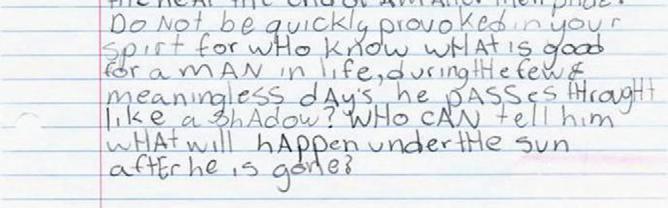 Do Not be quickly provoked in your
spirt for wHo know wHAt is good
for a mAN in life, during tHe few &
meaningless dAy's he pASSes tHrougHt
like a shAdow? WHo CAN tell him
wHAt will hAppen under tHe sun
aftEr he is gone?